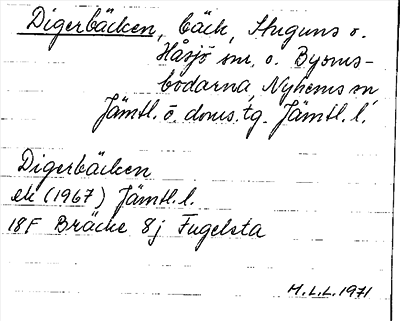 Digerbäcken, bäck, Stuguns o.
Håsjö sn, o. Byoms-
bodarna, Nyhems sn
Jämtl. ö. doms.tg. Jämtl. l.
Digerbäcken
ek (1967) Jämtl. l.
18F Bräcke 8j Fugelsta
H.L.L. 1971